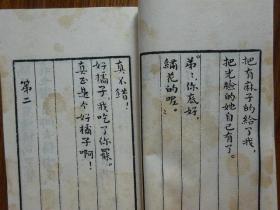 把有麻子的给了我，
把光脸的她自己有了。
弟弟，你底好，
绣花的呢。
真不错！
好橘子，我吃了你罢。
真正是个好橘子啊！
第二